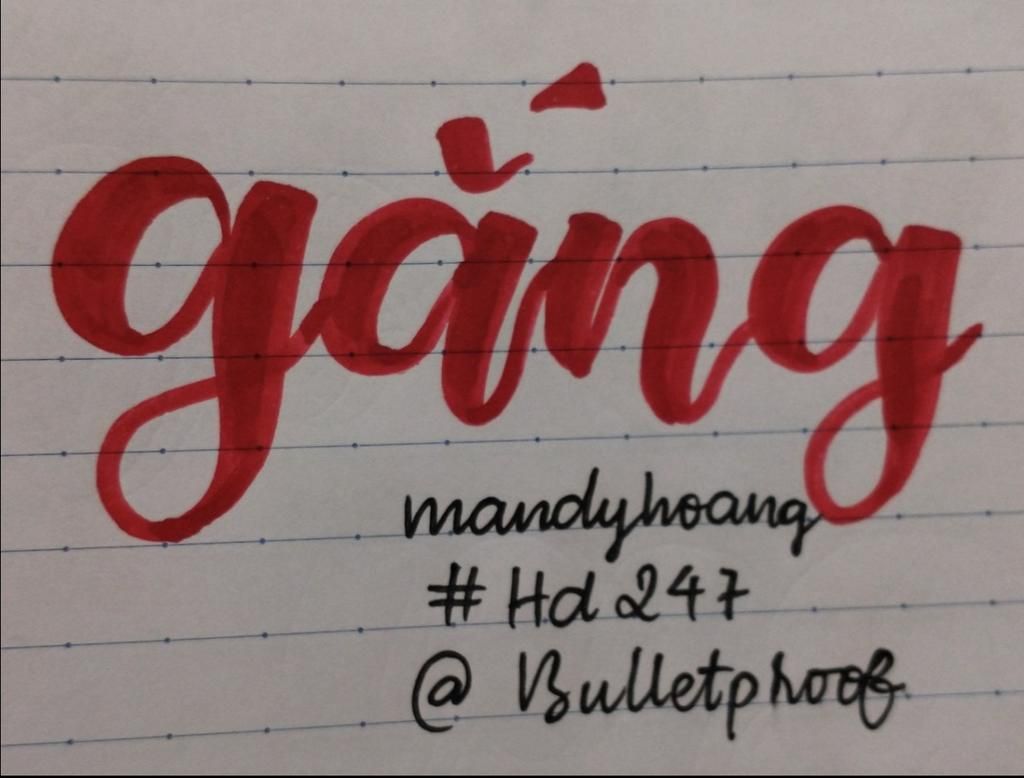 gắng
mandyhoang
# Hd 247
@ Bulletphoof